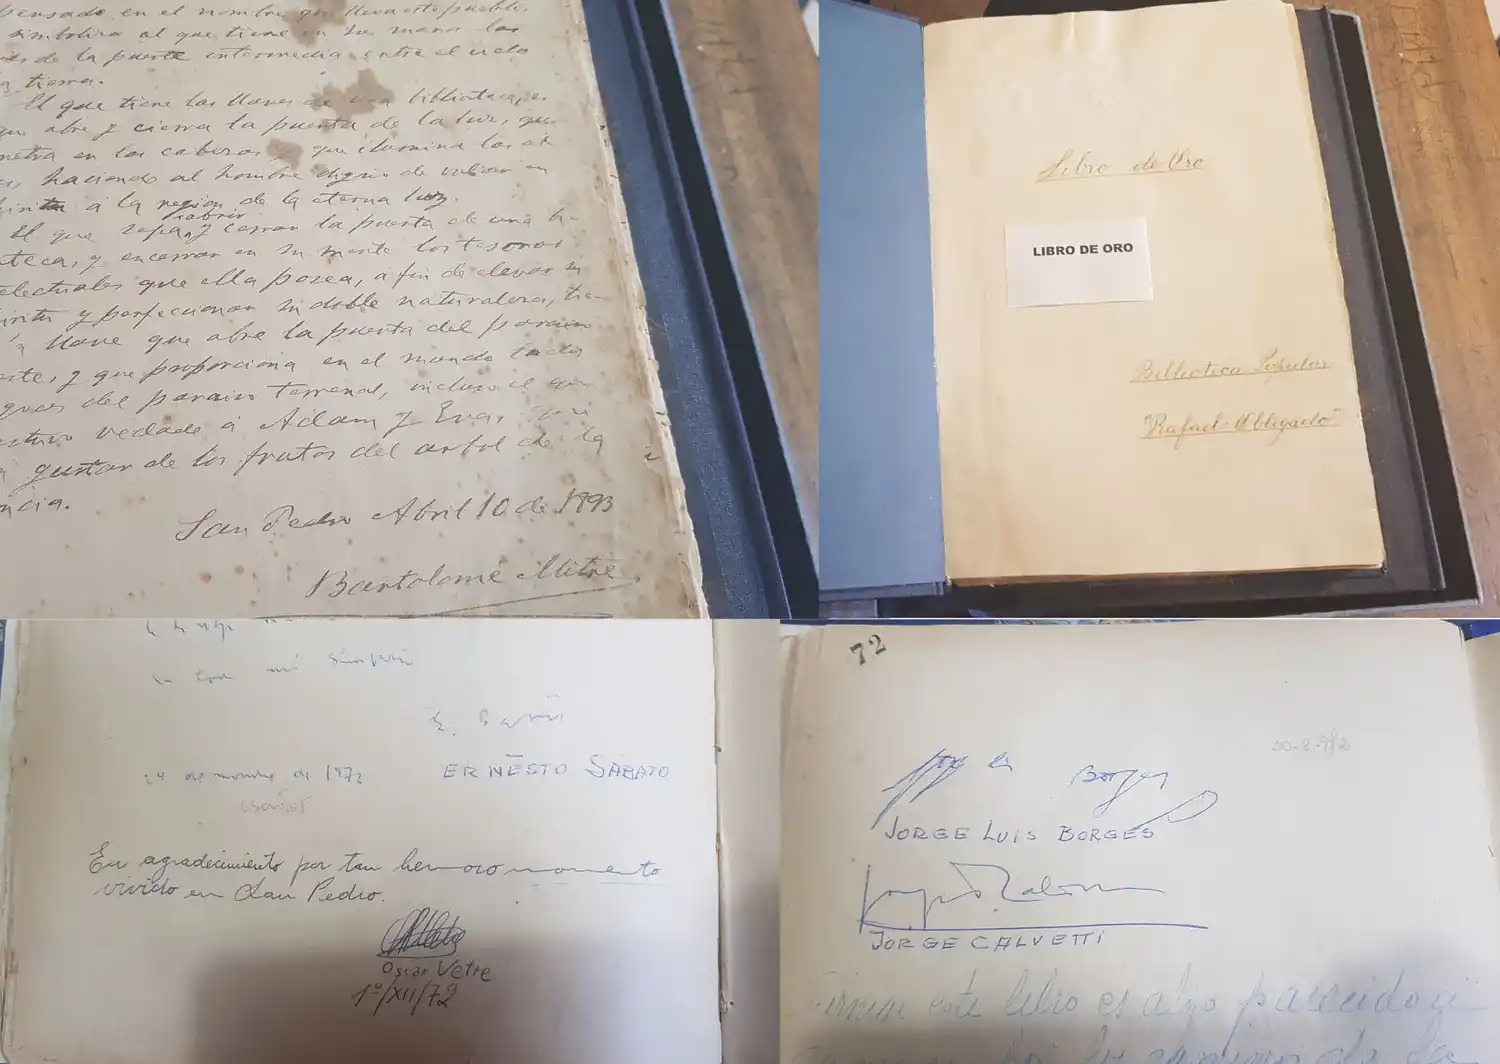 pensado en el nombre que lleva este pueblo,
simboliza al que tiene en su mano las
de la puerta intermedia entre el cielo
tierra.
El que tiene las llaves de una biblioteca, es
que abre y cierra la puerta de la luz, que
en las cabezas y que ilumina las
haciendo al hombre digno de en
á la region de la eterna luz.
abrir
El que sepa y cerrar la puerta de una bi-
teca, y encerrar en su mente los tesoros
electuales que ella posea, á fin de elevar su
iritu y perfeccionar su doble naturaleza, tie-
a llave que abre la puerta del paraiso
y que proporciona en el mundo todos
goces del paraiso terrenal, incluso el que
estuvo vedado á Adam y Eva,
gustar de los frutos del arbol de la
ncia.
San Pedro Abril 10 de 1893
Bartolomé Mitre
Libro de Oro
LIBRO DE ORO
Biblioteca Popular
"Rafael Obligado"
con mi simpatía
E. Sabato
24 de de 1972
ERNESTO SABATO
En agradecimiento por tan hermoso momento
vivido en San Pedro.
Oscar Vetre
1º/XII/72
72
30-8-
Borges
JORGE LUIS BORGES
JORGE CALVETTI
Firmar este libro es algo parecido a
por los caminos de la